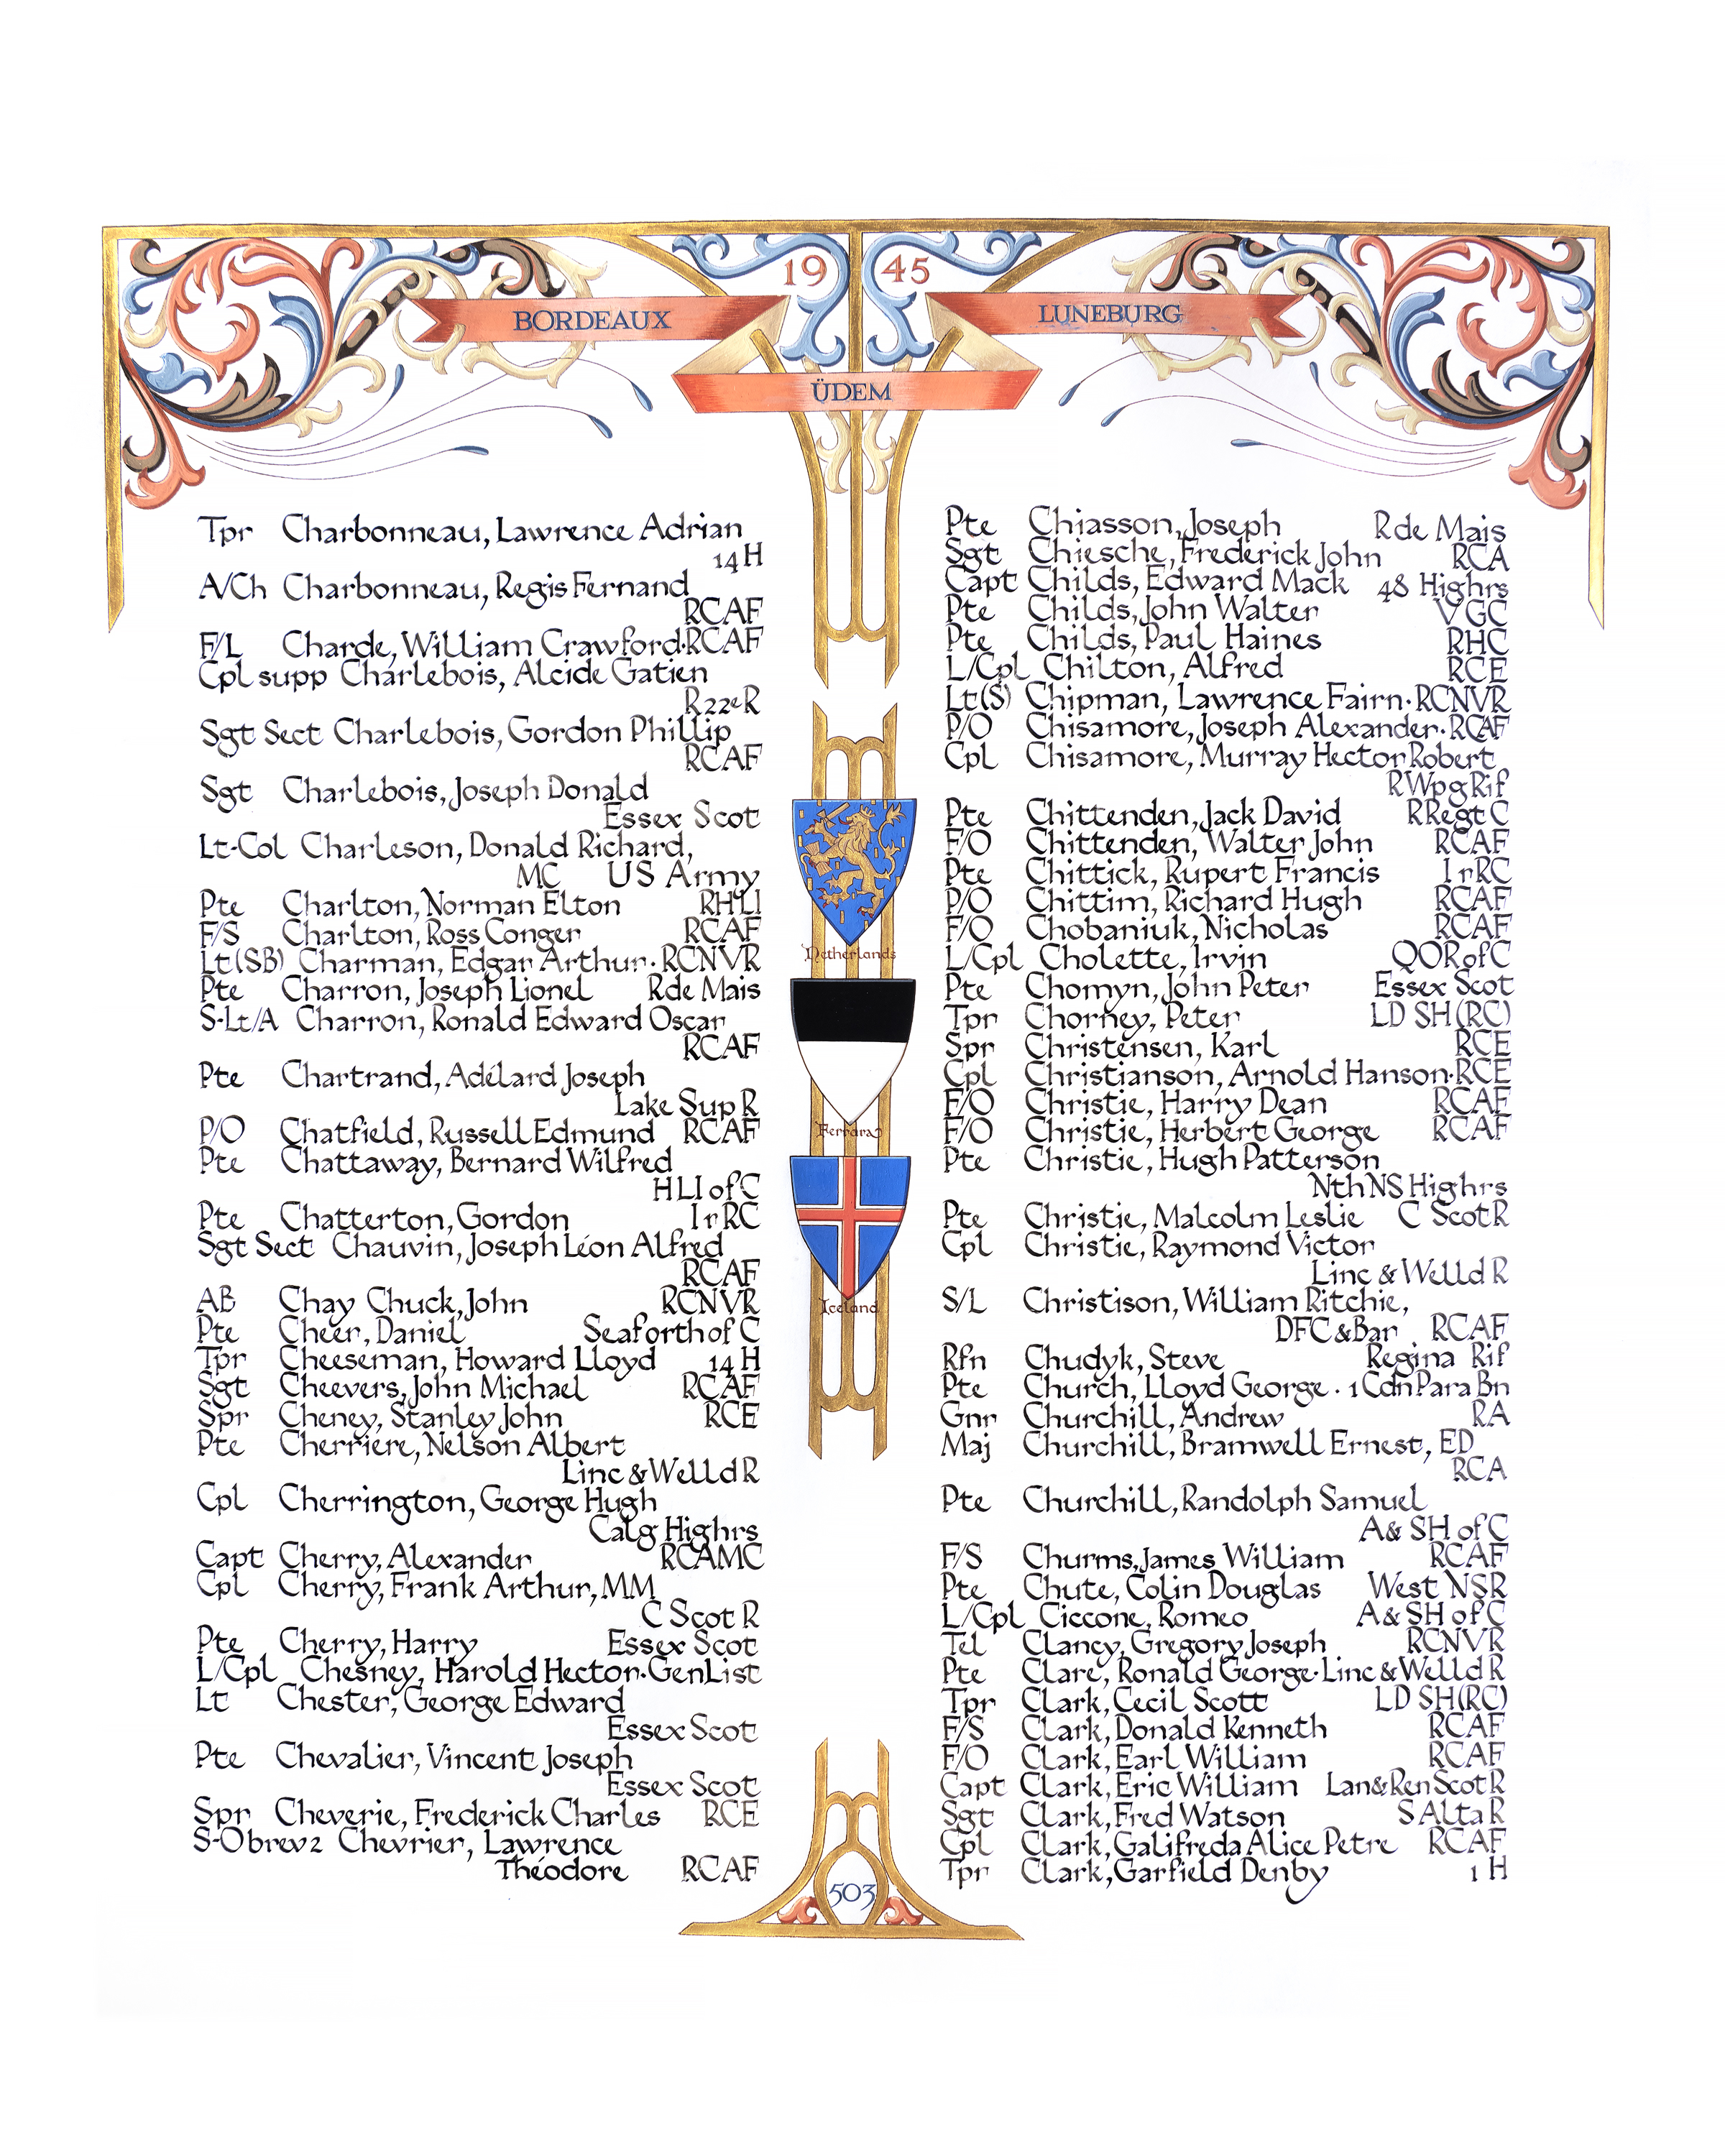 19 45
BORDEAUX
LUNEBURG
ÜDEM
Tpr Charbonneau, Lawrence Adrian
14 H
A/Ch Charbonneau, Regis Fernand
RCAF
F/L Charde, William Crawford·RCAF
Cpl supp Charlebois, Alcide Gatien
R22eR
Sgt Sect Charlebois, Gordon Phillip
RCAF
Sgt Charlebois, Joseph Donald
Essex Scot
Lt-Col Charleson, Donald Richard,
MC US Army
Pte Charlton, Norman Elton RHLI
F/S Charlton, Ross Conger RCAF
Lt(SB) Charman, Edgar Arthur·RCNVR
Pte Charron, Joseph Lionel R de Mais
S-Lt/A Charron, Ronald Edward Oscar
RCAF
Pte Chartrand, Adélard Joseph
Lake Sup R
P/O Chatfield, Russell Edmund RCAF
Pte Chattaway, Bernard Wilfred
HLI of C
Pte Chatterton, Gordon IrRC
Sgt Sect Chauvin, Joseph Léon Alfred
RCAF
AB Chay Chuck, John RCNVR
Pte Cheer, Daniel Seaforth of C
Tpr Cheeseman, Howard Lloyd 14 H
Sgt Cheevers, John Michael RCAF
Spr Cheney, Stanley John RCE
Pte Cherriere, Nelson Albert
Linc & Welld R
Cpl Cherrington, George Hugh
Calg Highrs
Capt Cherry, Alexander RCAMC
Cpl Cherry, Frank Arthur, MM
C Scot R
Pte Cherry, Harry Essex Scot
L/Cpl Chesney, Harold Hecton·GenList
Lt Chester, George Edward
Essex Scot
Pte Chevalier, Vincent Joseph
Essex Scot
Spr Cheverie, Frederick Charles RCE
S-Obrev2 Chevrier, Lawrence
Théodore RCAF
Netherlands
Ferrara
Iceland
503
Pte Chiasson, Joseph R de Mais
Sgt Chiesche, Frederick John RCA
Capt Childs, Edward Mack 48 Highrs
Pte Childs, John Walter VGC
Pte Childs, Paul Haines RHC
L/Cpl Chilton, Alfred RCE
Lt(S) Chipman, Lawrence Fairn·RCNVR
P/O Chisamore, Joseph Alexander·RCAF
Cpl Chisamore, Murray Hector Robert
RWpg Rif
Pte Chittenden, Jack David RRegt C
F/O Chittenden, Walter John RCAF
Pte Chittick, Rupert Francis IrRC
P/O Chittim, Richard Hugh RCAF
F/O Chobaniuk, Nicholas RCAF
L/Cpl Cholette, Irvin QOR of C
Pte Chomyn, John Peter Essex Scot
Tpr Chorney, Peter LD SH (RC)
Spr Christensen, Karl RCE
Cpl Christianson, Arnold Hanson·RCE
F/O Christie, Harry Dean RCAF
F/O Christie, Herbert George RCAF
Pte Christie, Hugh Patterson
Nth NS Highrs
Pte Christie, Malcolm Leslie C Scot R
Cpl Christie, Raymond Victor
Linc & Welld R
S/L Christison, William Ritchie,
DFC & Bar RCAF
Rfn Chudyk, Steve Regina Rif
Pte Church, Lloyd George · 1 Cdn Para Bn
Gnr Churchill, Andrew RA
Maj Churchill, Bramwell Ernest, ED
RCA
Pte Churchill, Randolph Samuel
A & SH of C
F/S Churms, James William RCAF
Pte Chute, Colin Douglas West NSR
L/Cpl Ciccone, Romeo A & SH of C
Tel Clancy, Gregory Joseph RCNVR
Pte Clare, Ronald George·Linc & Welld R
Tpr Clark, Cecil Scott LD SH (RC)
F/S Clark, Donald Kenneth RCAF
F/O Clark, Earl William RCAF
Capt Clark, Eric William Lan & Ren Scot R
Sgt Clark, Fred Watson S Alta R
Cpl Clark, Galifreda Alice Petre RCAF
Tpr Clark, Garfield Denby 1 H